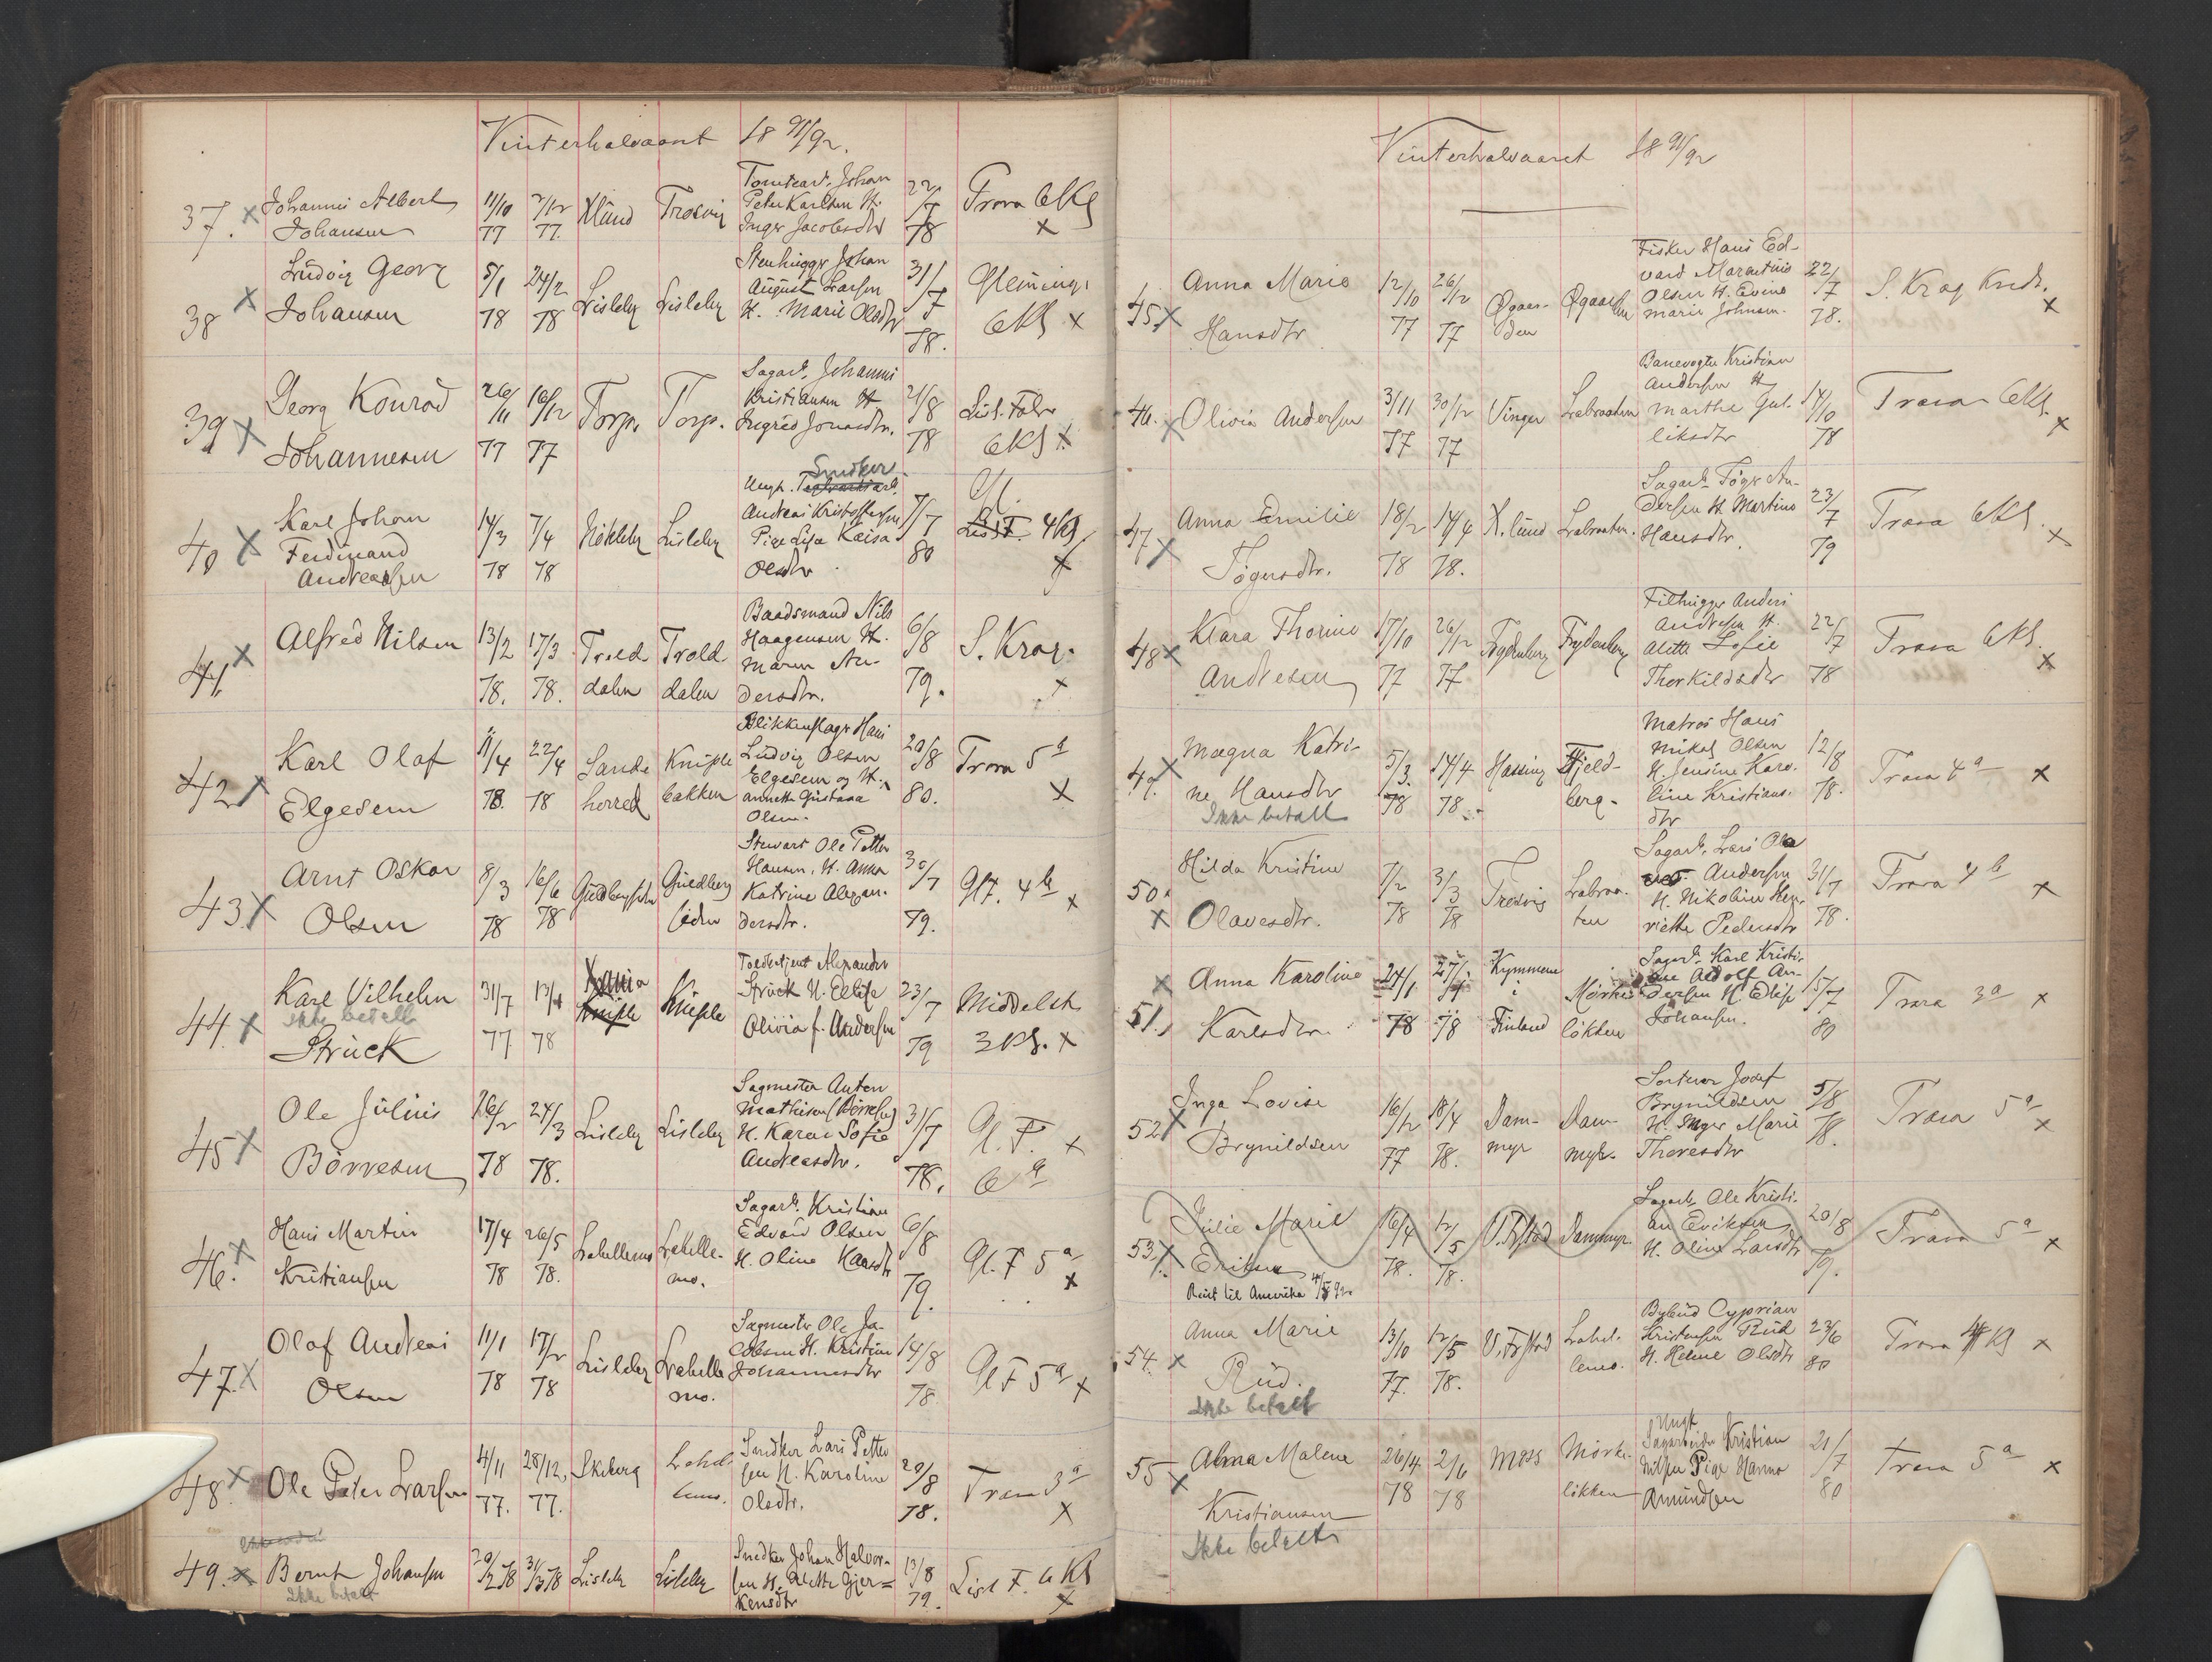 Vinterhalvaaret 18 91/92.
37. x Johannes Albert Johansen 11/10 77 2/12 77. Klund Trosvig Tomtearb. Johan Peter Karlsen H. Inger Jacobsdtr 22/7 78 Trara 6Kl x
38 x Ludvig Georg Johansen 5/1 78 24/2 78 Lisleby Lisleby Stenhugger Johan August Larsen H. Marie Olsdtr 31/7 78. Glemmings 6Kl x
39 x Georg Konrad Johannesen 26/11 77 16/12 77 Torp. Torp. Sagarb. Johannes Kristiansen H Ingrid Jonasdtr. 21/8 78 Lisl. Fabr 6Kl x
40 x Karl Johan Ferdinand Andreassen 14/3 78 7/4 78 Lisleby Ungk. Snedker Andreas Kristoffersen Pige Lisa Kaisa Olsdtr 7/7 80 Gl. 4Kl x
41. x Alfred Nilsen 13/2 78. 17/3 78. Trolddalen Trolddalen Baadsmand Nils Haagensen H. Maren Andersdtr. 6/8 79. S. Krog. x
42 x Karl Olaf Elgesem 11/4 78. 22/4 78 Sandeherred Kniplebakken Blikkenslager Hans Ludvig Olsen Elgesem og H. Annette Gustava Olsen. 20/8 80. Trara 5a x
43 x Arnt Oskar Olsen 8/3 78 16/6 78 Guldbergsiden Stewart Ole Petter Hansen, H. Anna Katrine Alexandersdtr. 30/7 79. Gl.F. 4b x
44. x Karl Vilhelm Struck Ikke betalt 31/7 77 13/1 78 Knip̶l̶e̶ Kniple Toldbetjent Alexander Struck H. Elise Olivia f. Andersen 23/7 79 Middelsk 3Kl. x
45 x Ole Julius Børresen 26/2 78 24/3 78. Lisleby Lisleby Sagmester Anton Mathisen (Børresen) H. Karen Sofie Andreasdtr. 31/7 78. Gl. F. 6a x
46. x Hans Martin Kristiansen 17/4 78 26/5 78. Labellemo Labellemo. Sagarb. Kristian Edvard Olsen H. Oline Larsdtr 6/8 79. Gl. F 5a x
47. x Olaf Andreas Olsen 11/1 78 17/2 78 Lisleby Labellemo. Sagmester Ole Jacobsen H. Kristine Johannesdtr 14/8 78 Gl F 5a x
48. x Ole Peter Larsen 4/11 77. 28/12 77. Skeberg Labellemo. Snedker Lars Pettersen H. Karoline Olsdtr. 20/8 78. Trara 3a x
49. x Bernt Johansen Ikke betalt 20/2 78 31/3 78 Lisleby Lisleby Snedker Johan Halvorsen H. Gjerkensdtr 13/8 79. Lisl F. 6 Kl x
Vinterhalvaaret 18 91/92
45. x Anna Marie Hansdtr 12/10 77 26/12 77 Øgaarden Øgaarden Fisker Hans Edvard Marentius Olsen H. Evine Marie Johnsen. 22/7 78. S. Krog Kredr. x
46. x Olivia Andersen 3/11 77 30/12 77 Vinger Labraaten Banevogter Kristian Andersen H Marthe Gulliksdtr 14/10 78 Trara 6Kl. x
47 x Anna Emilie Tøgersdtr. 18/2 78 14/4 78. K.lund Labraaten. Sagarb. Tøger Andersen H Martine Hansdtr. 23/7 79 Trara 6Kl. x
48 x Klara Thorine Andresen 17/10 77 26/12 77 Frydenberg Frydenberg Filhugger Anders Andresen H. Alette Sofie Thorkildsdtr 22/7 78 Trara 6Kl. x
49. x Magna Katrine Hansdtr Ikke betalt 5/3. 78 14/4 78 Hassing Fjeldberg. Matros Hans Mikal Olsen H. Jensine Karoline Kristiansdtr 12/8 78. Trara 4a x
50. x Hilda Kristine Olavesdtr. 7/2 78 3/3 78 Trosvig Labraaten Sagarb. Lars Andersen H. Nikoline Henriette Pedersdtr 31/7 78. Trara 4b x
51. x Anna Karoline Karlsdtr. 24/1 78 27/ 78 Kymmene i Finland Mørkeløkken Sagarb. Karl Kristine Adolf Andersen H. Elise Johansen. 15/7 80 Trara 3a x
52 x Inga Lovise Brynildsen 16/12 77 18/4 78. Dammyr Dammyr. Sorterer Josef Brynildsen H. Inger Marie Thoresdtr 5/8 78. Trara 5a x
53. x Julie Marie Eriksen Reist til Amerika 4/5 92. 16/4 78. 12/5 78. V. Frstad Dammyr. Sagarb. Ole Kristian Eriksen, H. Oline Larsdtr 20/8 79. Trara 5a x
54. x Anna Marie Rud. Ikke betalt 13/10 77. 12/5 78. V. Frstad Labellemo. Bybud Cyprian Kristensen Rud H. Helene Olsdtr 23/6 80 Trara 4 Kl x
55 x Alma Malene Kristiansen Ikke betalt 26/4 78 2/6 78 Moss Mørkeløkken Ungk Sagarbeider Kristian Nilsen Pige Hanna Amundsen 21/7 80 Trara 5a x